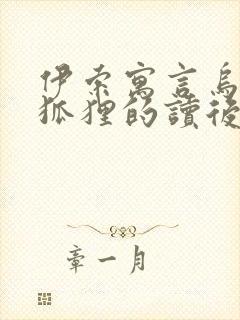 伊索寓言烏
狐狸的讀後
章一月